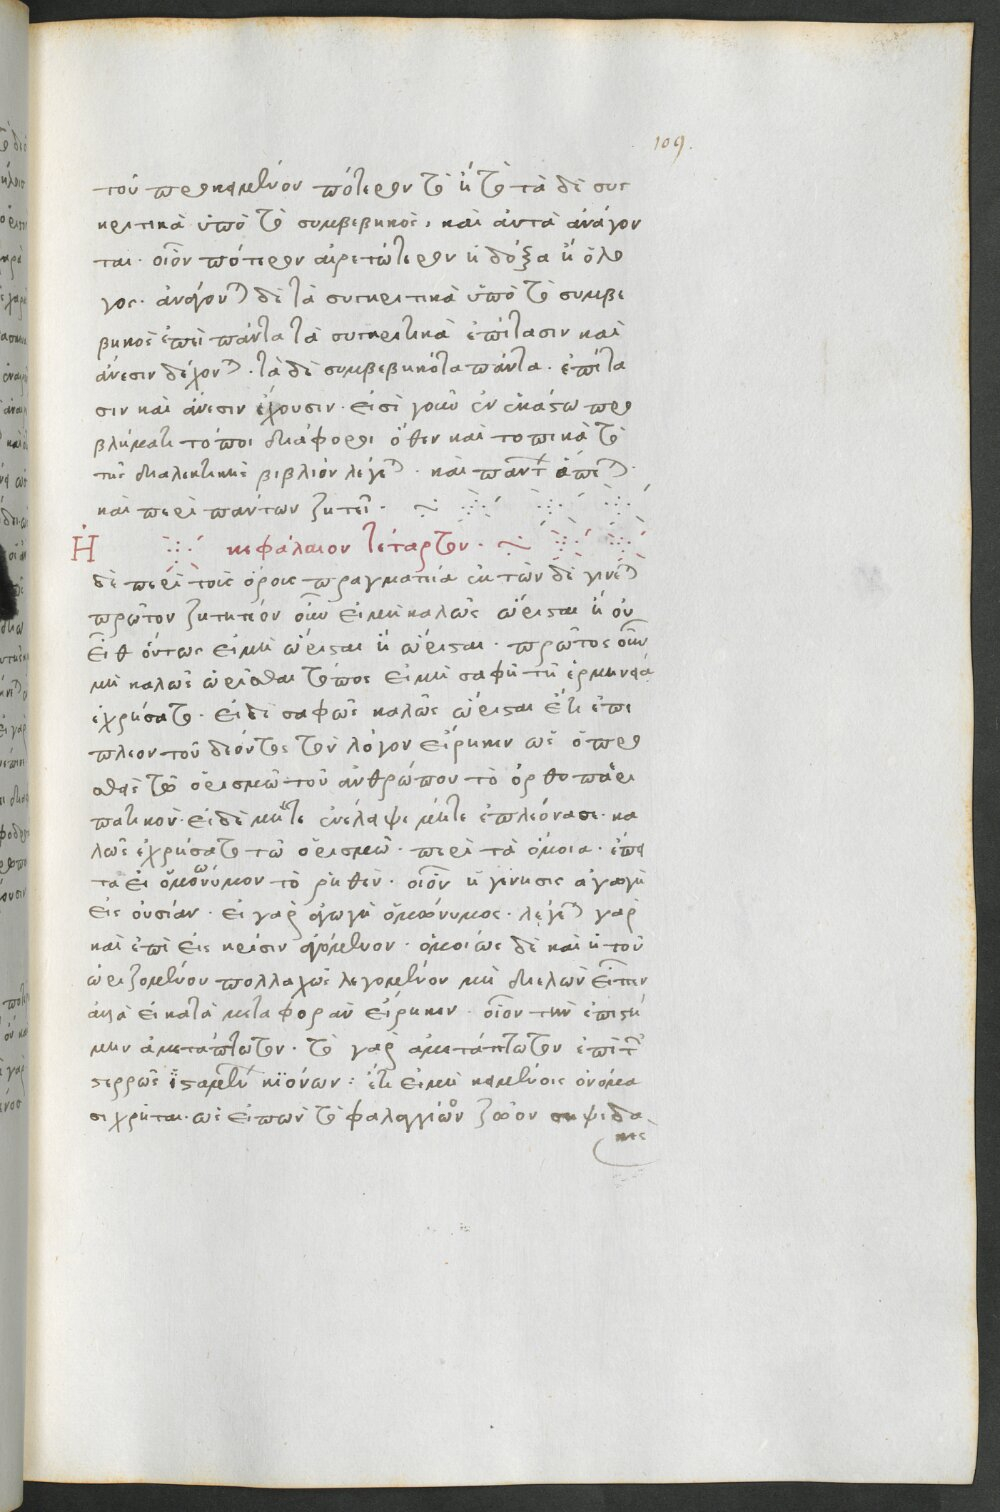 109.
τοῦ προκειμένου πότερον τὸ ἢ τὸ τὰ δὲ συγ
κριτικὰ ὑπὸ τὸ συμβεβηκὸς, καὶ αὐτὰ ἀνάγον
ται. οἷον πότερον αἱρετώτερον ἡ δόξα ἢ ὁ λο
γος. ἀνάγονται δὲ τὰ συγκριτικὰ ὑπὸ τὸ συμβε
βηκὸς ἐπεὶ πάντα τὰ συγκριτικὰ ἐπίτασιν καὶ
ἄνεσιν δέχονται. τὰ δὲ συμβεβηκότα πάντα. ἐπίτα
σιν καὶ ἄνεσιν ἔχουσιν. εἰσὶ γοῦν ἐν ἑκάστω προ
βλήματι τόποι διάφοροι ὅθεν καὶ τοπικὰ τὸ
τῆς διαλεκτικῆς βιβλίον λέγεται. καὶ
καὶ περὶ πάντων ζητεῖ.
κεφάλαιον τέταρτον.
Ἡ
δὲ περὶ τοὺς ὅρους πραγματεία ἐκ τῶν δὲ γίνεται
πρῶτον ζητητέον οὖν εἰ μὴ καλῶς ὥρισται ἢ οὐ
εἶθ οὕτως εἰ μὴ ὥρισται ἢ ὥρισται. πρῶτος οὖν
μὴ καλῶς ὡρίσθαι τόπος εἰ μὴ σαφῆ τῆ ἑρμηνεία
ἐχρήσατο. εἰ δὲ σαφῶς καλῶς ὥρισται ἔτι ἐπι
πλεον τοῦ δέοντος τὸν λόγον εἴρηκεν ὡς ὁ προ
σθεὶς τῷ ὁρισμῶ τοῦ ἀνθρώπου τὸ ὀρθοπερι
πατικόν. εἰ δὲ μήτε ἐνέλειψε μήτε ἐπλεόνασε. κα
λῶς ἐχρήσατο τῶ ὁρισμῶ. περὶ τὰ ὅμοια. ἔπει
τα εἰ ὁμώνυμον τὸ ῥηθέν. οἷον ἡ γένησις ἀγωγὴ
εἰς οὐσίαν. εἰ γὰρ ἀγωγὴ ὁμώνυμος. λέγεται γὰρ
καὶ ἐπὶ εἰς κρίσιν ἀγόμενον. ὁμοίως δὲ καὶ ἡ τοῦ
ὡριζομένου πολλαχῶς λεγομένου μὴ διελὼν εἶπεν
ἀλλὰ εἰ κατὰ μεταφορὰν εἴρηκεν. οἷον τὴν ἐπιστή
μην ἀμετάπτωτον. τὸ γὰρ ἀμετάπτωτον ἐπὶ τῶν
στερρῶς ἱσταμένων κιόνων: ἔτι εἰ μὴ κειμένοις ὀνόμα
σι χρῆται. ὡς εἰπὼν τὸ φαλαγγιῶν ζῷον σηψιδα
κὲς